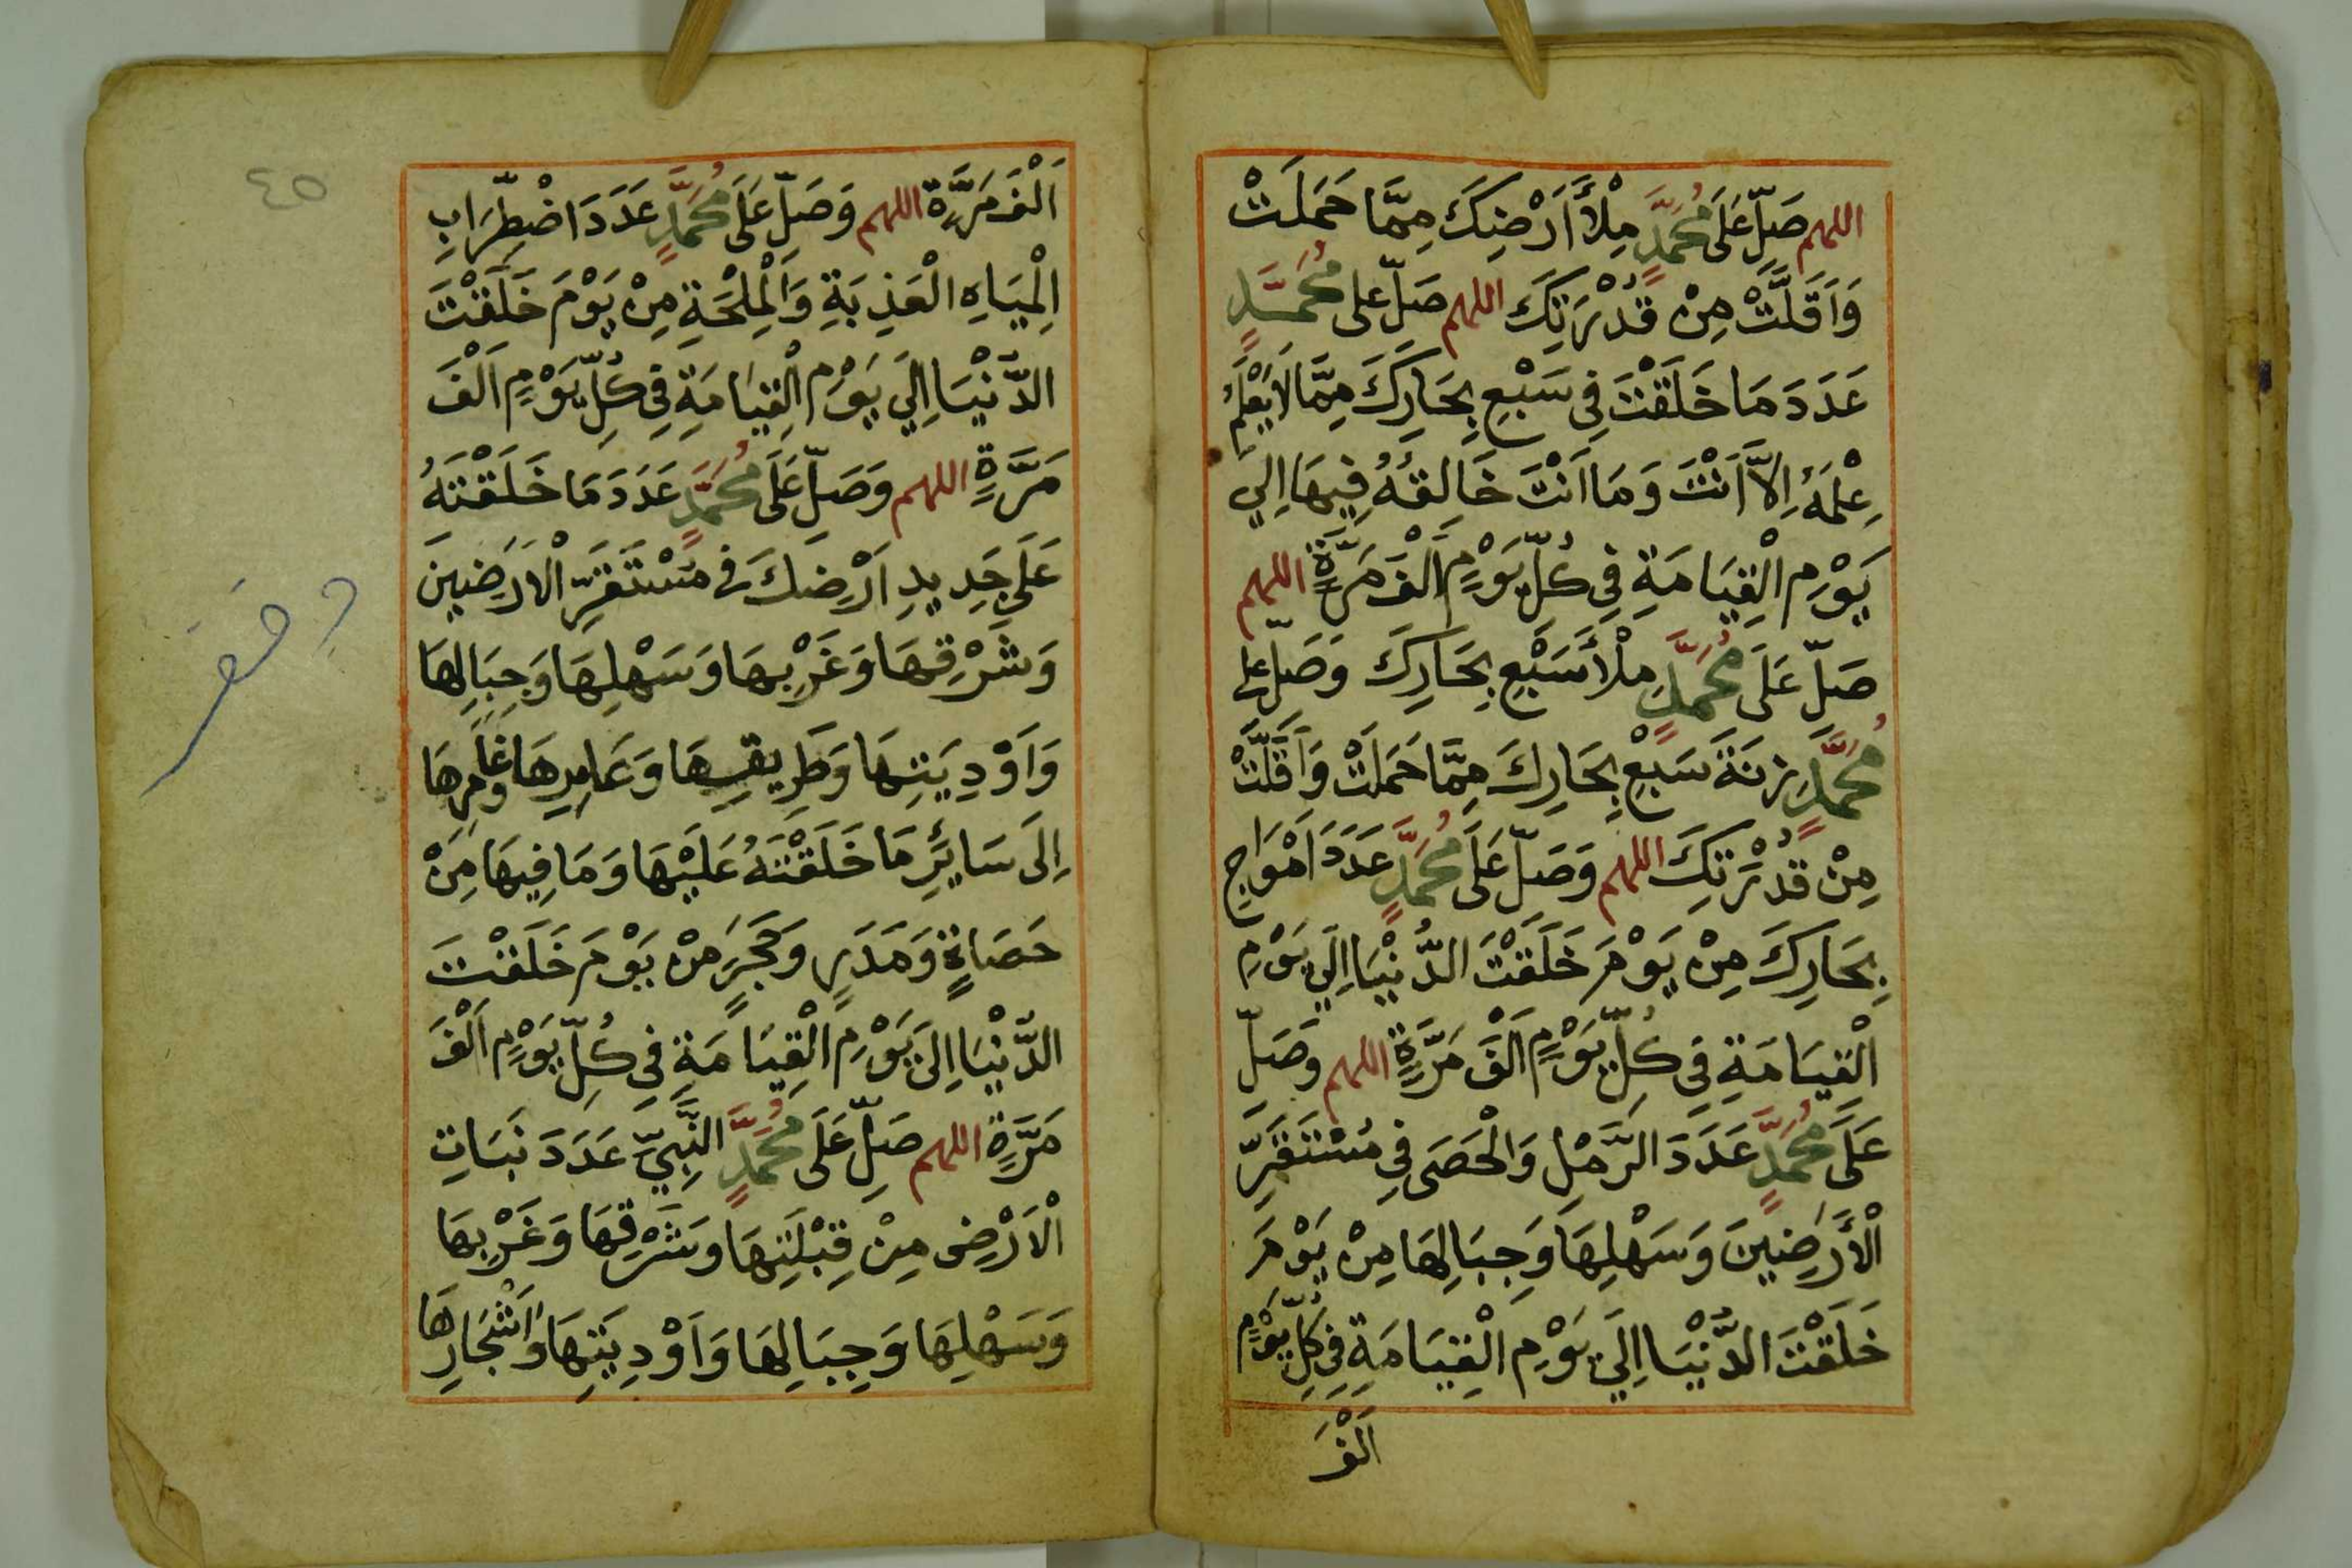 اللهم صَلِّ عَلَى مُحَمَّدٍ مِلْأَ أَرْضِكَ مِمَّا حَمَلَتْ
وَاَقَلَّتْ مِنْ قُدْرَتِكَ اللهم صَلِّ على مُحَمَّدٍ
عَدَدَ مَا خَلَقْتَ فِى سَبْعِ بِحَارِكَ مِمَّا لَا يَعْلَمُ
عِلْمَهُ اِلَّا اَنْتَ وَمَا اَنْتَ خَالِقُهُ فِيهَا اِلَى
يَوْمِ الْقِيَامَةِ فِى كُلِّ يَوْمٍ اَلْفَ مَرَّةٍ اللهم
صَلِّ عَلَى مُحَمَّدٍ مِلْأَ سَبْعِ بِحَارِكَ وَصَلِّ على
مُحَمَّدٍ زِنَةَ سَبْعِ بِحَارِكَ مِمَّا حَمَلَتْ وَاَقَلَّتْ
مِنْ قُدْرَتِكَ اللهم وَصَلِّ عَلَى مُحَمَّدٍ عَدَدَ اَمْوَاجِ
بِحَارِكَ مِنْ يَوْمَ خَلَقْتَ الدُّنْيَا اِلَى يَوْمِ
الْقِيَامَةِ فِى كُلِّ يَوْمٍ اَلْفَ مَرَّةٍ اللهم وَصَلِّ
عَلَى مُحَمَّدٍ عَدَدَ الرَّمْلِ وَالْحَصَى فِى مُسْتَقَرِّ
الْأَرَضِينَ وَسَهْلِهَا وَجِبَالِهَا مِنْ يَوْمَ
خَلَقْتَ الدُّنْيَا اِلَى يَوْمِ الْقِيَامَةِ فِى كُلِّ يَوْمٍ
اَلْفَ
٤٥
اَلْفَ مَرَّةٍ اللهم وَصَلِّ عَلَى مُحَمَّدٍ عَدَدَ اضْطِرَابِ
الْمِيَاهِ الْعَذِبَةِ وَالْمِلْحَةِ مِنْ يَوْمَ خَلَقْتَ
الدُّنْيَا اِلَى يَوْمِ الْقِيَامَةِ فِى كُلِّ يَوْمٍ اَلْفَ
مَرَّةٍ اللهم وَصَلِّ عَلَى مُحَمَّدٍ عَدَدَ مَا خَلَقْتَهُ
عَلَى جَدِيدِ اَرْضِكَ فى مُسْتَقَرِّ الْاَرَضِينَ
وَشَرْقِهَا وَغَرْبِهَا وَسَهْلِهَا وَجِبَالِهَا
وَاَوْدِيَتِهَا وَطَرِيقِهَا وَعَامِرِهَا وغَامِرِهَا
اِلَى سَائِرِ مَا خَلَقْتَهُ عَلَيْهَا وَمَا فِيهَا مِنْ
حَصَاةٍ وَمَدَرٍ وَحَجَرٍ مِنْ يَوْمَ خَلَقْتَ
الدُّنْيَا اِلَى يَوْمِ الْقِيَامَةِ فِى كُلِّ يَوْمٍ اَلْفَ
مَرَّةٍ اللهم صَلِّ عَلَى مُحَمَّدٍ النَّبِيِّ عَدَدَ نَبَاتِ
الْاَرْضِ مِنْ قِبْلَتِهَا وشَرْقِهَا وَغَرْبِهَا
وَسَهْلِهَا وَجِبَالِهَا وَاَوْدِيَتِهَا وَاَشْجَارِهَا